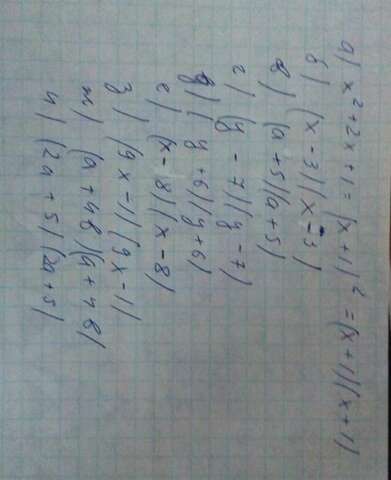 а) x²+2x+1=(x+1)²=(x+1)(x+1)
б) (x-3)(x-3)
в) (a+5)(a+5)
г) (y-7)(y-7)
д) (y+6)(y+6)
е) (x-8)(x-8)
з) (9x-1)(9x-1)
ж) (a+4b)(a+4b)
и) (2a+5)(2a+5)